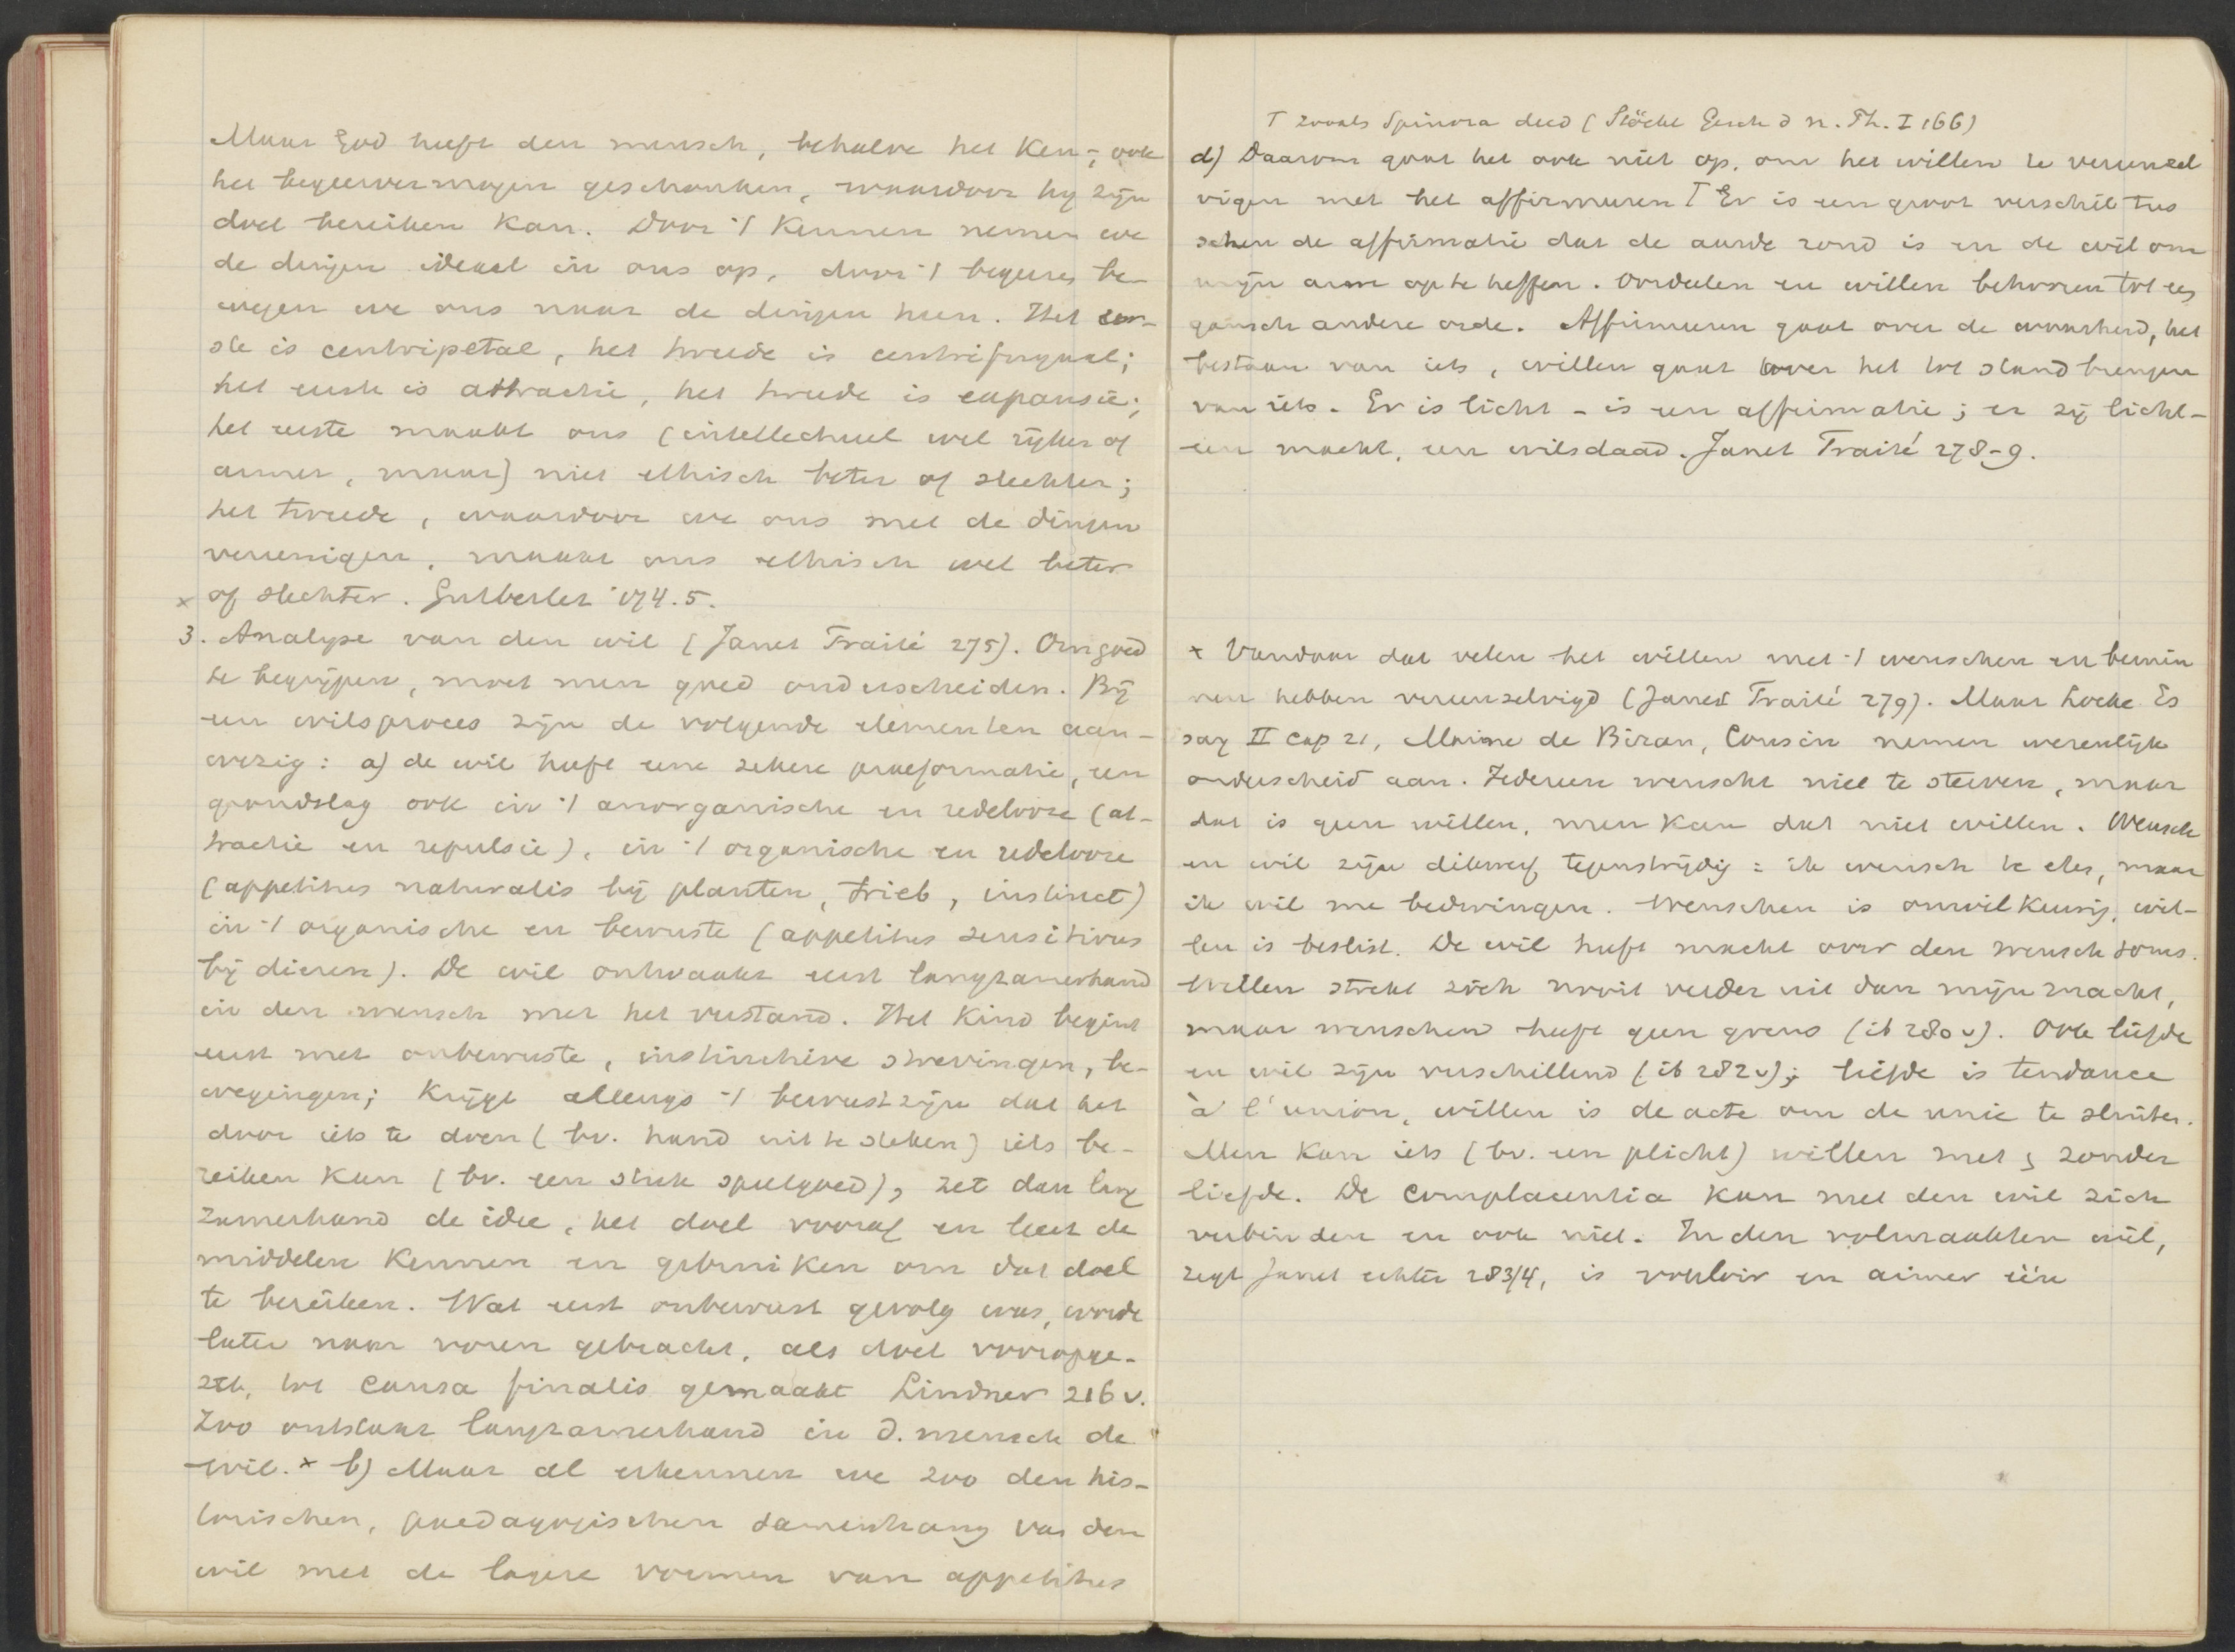 Maar God heeft den mensch, behalve het ken-, ook
het begeervermogen geschonken, waardoor hij zijn
doel bereiken kan. Door 't kennen nemen we
de dingen ideaal in ons op, door 't begeeren be-
wegen we ons naar de dingen heen. Het eer-
ste is centripetaal, het tweede is centrifugaal;
het eerste is attractie, het tweede is expansie;
het eerste maakt ons (intellectueel wel rijker of
armer, maar) niet ethisch beter of slechter;
het tweede, waardoor we ons met de dingen
vereenigen, maakt ons ethisch wel beter
x of slechter. Gutberlet 174.5.
3. Analyse van den wil (Janet Traité 275). Om goed
te begrijpen, moet men goed onderscheiden. Bij
een wilsproces zijn de volgende elementen aan-
wezig: a) de wil heeft eene zekere praeformatie, een
grondslag ook in 't anorganische en redelooze (at-
tractie en repulsie), in 't organische en redelooze
(appetitus naturalis bij planten, trieb, instinct)
in 't organische en bewuste (appetitus sensitivus
bij dieren). De wil ontwaakt eerst langzamerhand
in den mensch met het verstand. Het kind begint
eerst met onbewuste, instinctieve strevingen, be-
wegingen; krijgt allengs 't bewustzijn dat het
door iets te doen (bv. hand uit te steken) iets be-
reiken kan (bv. een stuk speelgoed), zet dan lang
zamerhand de idee, het doel voorop en leert de
middelen kennen en gebruiken om dat doel
te bereiken. Wat eerst onbewust gevolg was, wordt
later naar voren gebracht, als doel vooropge-
zet, tot causa finalis gemaakt Lindner 216 v.
Zoo ontstaat langzamerhand in d. mensch de
wil. x b) Maar al erkennen we zoo den his-
torischen, paedagogischen samenhang van den
wil met de lagere vormen van appetitus
T zooals Spinoza deed (Stöckl Gesch d n. Ph. I 166)
d) Daarom gaat het ook niet op, om het willen te vereenzel
vigen met het affirmeeren T Er is een groot verschil tus
schen de affirmatie dat de aarde rond is en de wil om
mijn arm op te heffen. Oordeelen en willen behooren tot een
gansch andere orde. Affirmeeren gaat over de waarheid, het
bestaan van iets, willen gaat over het tot stand brengen
van iets. Er is licht - is een affirmatie; er zij licht -
een macht, een wilsdaad. Janet Traité 278-9.
x Vandaar dat velen het willen met 't wenschen en bemin
nen hebben vereenzelvigd (Janet Traité 279). Maar Locke Es
say II cap 21, Maine de Biran, Cousin nemen wezenlijk
onderscheid aan. Iedereen wenscht niet te sterven, maar
dat is geen willen, men kan dat niet willen. Wensch
en wil zijn dikwerf tegenstrijdig: ik wensch te eten, maar
ik wil me bedwingen. Wenschen is onwillekeurig, wil-
len is beslist. De wil heeft macht over den wensch soms.
Willen strekt zich nooit verder uit dan mijn macht,
maar wenschen heeft geen grens (ib 280 v). Ook liefde
en wil zijn verschillend (ib 282 v); liefde is tendance
à l'union, willen is de acte om de unie te sluiten.
Men kan iets (bv. een plicht) willen met en zonder
liefde. De complacentia kan met den wil zich
verbinden en ook niet. In den volmaakten wil,
zegt Janet echter 283/4, is vouloir en aimer één